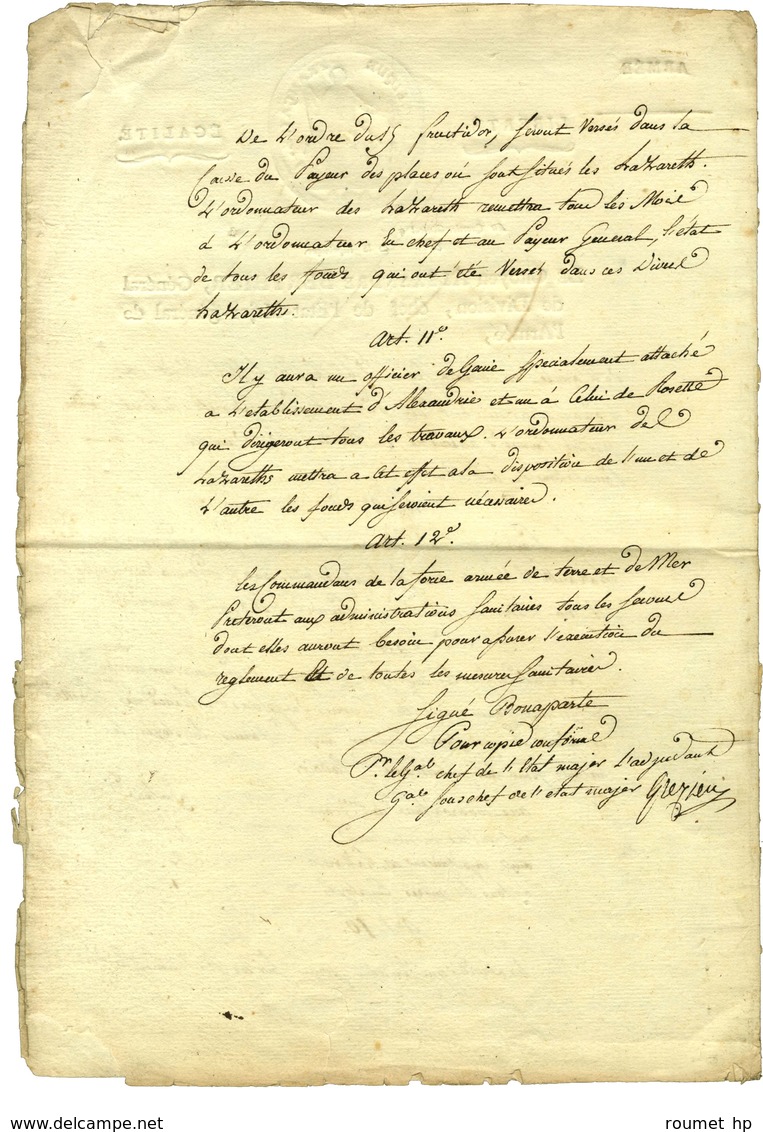 De L'ordre du 15 fructidor, seront Versés dans la
Caisse du Payeur des places où sont situés les Lazareth.
L'ordonnateur des Lazareth remettra tous les Mois
à L'ordonnateur En chef et au Payeur General, l'état
de tous les fonds qui ont été Versés dans ces Divers
Lazareths.
Art. 11e.
Il y aura un officier de Génie spécialement attaché
a L'etablissement d'Alexandrie et un à Celui de Rosette
qui dirigeront tous les travaux. L'ordonnateur des
Lazareths mettra a Cet effet a la disposition de l'un et de
L'autre les fonds qui seroient nécessaires.
Art. 12e.
les Commandans de la force armée de terre et de Mer
Preteront aux administrations sanitaires tous les secours
dont elles auront besoin pour assurer l'execution du
reglement Et de toutes les mesures sanitaires.
Signé Bonaparte
Pour copie conforme
Pr. le Gal. chef de l'Etat major L'adjudant
Gal. sous chef de l'etat major Grezieu
ARMÉE
ÉGALITÉ
roumet hp